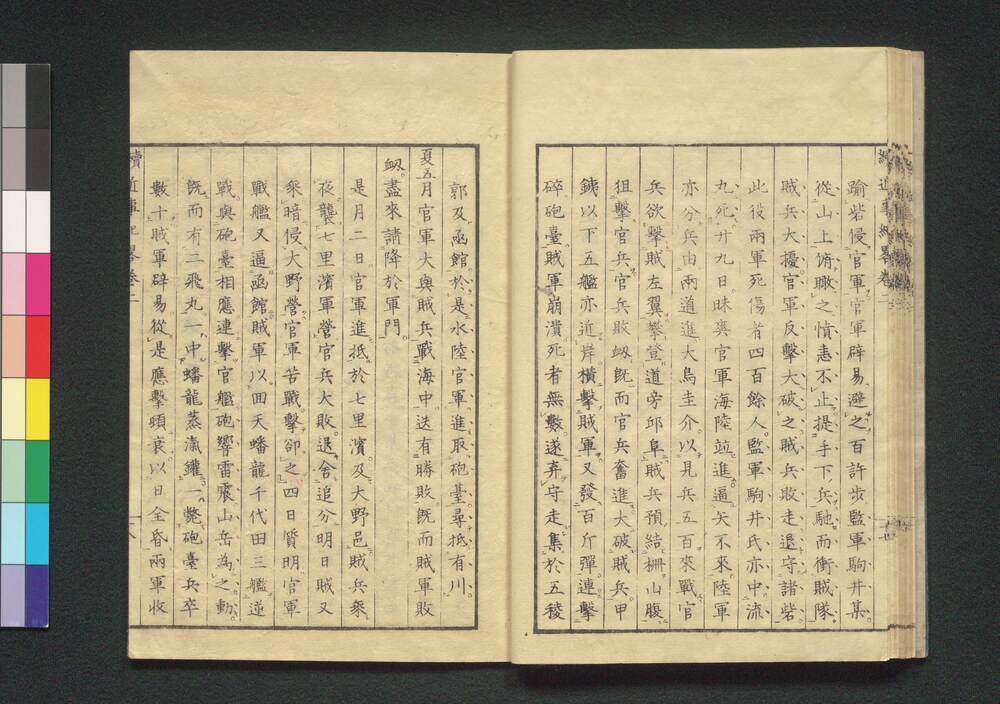 踰砦侵官軍官軍辟易避之百許步監軍駒井某
從山上俯瞰之憤恚不止提手下兵馳而衝賊隊
賊兵大擾官軍反擊大破之賊兵敗走退守諸砦
此役兩軍死傷者四百餘人監軍駒井氏亦中流
丸死廿九日昧爽官軍海陸竝進逼矢不來陸軍
亦分兵由兩道進大鳥圭介以見兵五百來戰官
兵欲擊賊左翼攀登道旁邱阜賊兵預結柵山腹
狙擊官兵官兵敗衂既而官兵奮進大破賊兵甲
鐵以下五艦亦近岸橫擊賊軍又發百斤彈連擊
碎砲臺賊軍崩潰死者無數遂弃守走集於五稜
郭及函館於是水陸官軍進取砲臺尋抵有川
夏五月官軍大與賊兵戰海中迭有勝敗既而賊軍敗
衂盡來請降於軍門
是月二日官軍進抵於七里濱及大野邑賊兵乘
夜襲七里濱軍營官兵大敗退舍追分明日賊又
乘暗侵大野營官軍苦戰擊卻之四日質明官軍
戰艦又逼函館賊軍以回天蟠龍千代田三艦逆
戰與砲臺相應連擊官艦砲響雷震山岳為之動
既而有三飛丸一中蟠龍蒸滊鑵一斃砲臺兵卒
數十賊軍辟易從是應擊頓衰以日全昏兩軍收